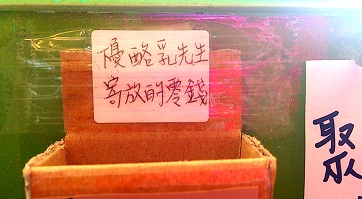 優酪乳先生
寄放的零錢
聚